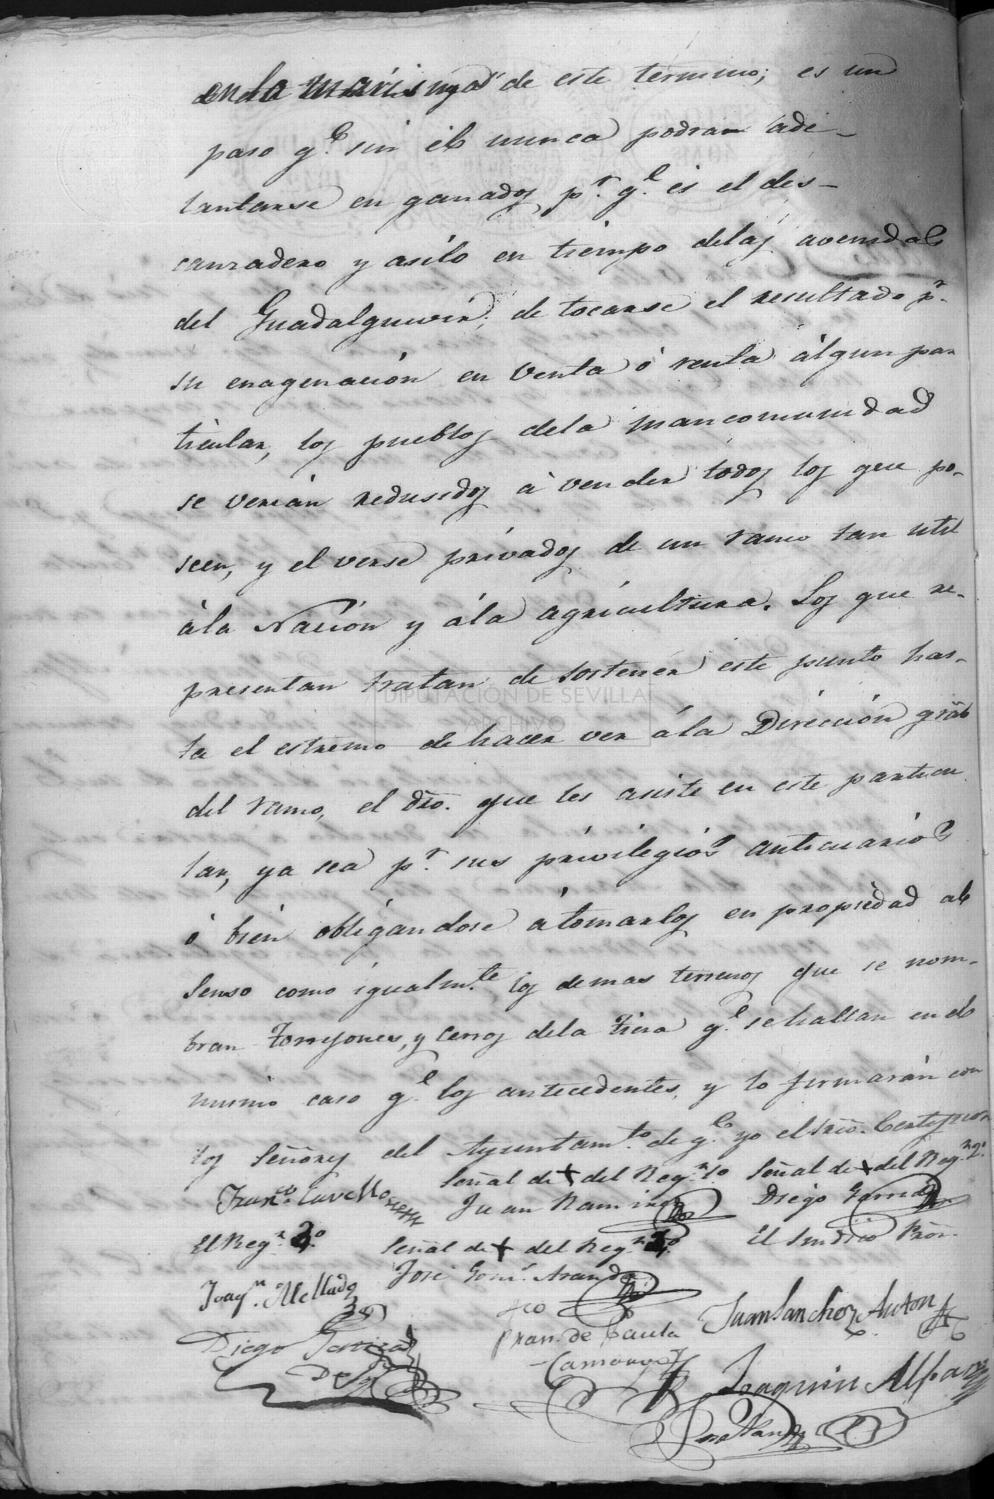 en la marisma de este termino; es un
paso q.e sin el nunca podran ade-
lantarse en ganados, p.r q.e es el des-
canzadero y asilo en tiempo delas avenidas
del Guadalquivir; de tocarse el resultado p.r
su enagenación en venta ó renta álgun par
ticular, los pueblos dela mancomunidad
se verian redusidos á vender todos los que po-
seen, y el verse privados de un ramo tan util
ála Nación y ála agricultura. Los que re-
presentan tratan de sostener este punto has-
ta el estremo de hacer ver ála Dirección gràl
del ramo, el dro. que les asiste en este particu
lar, ya sea p.r sus privilegios anticuarios
ó bien obligandose átomarlos en propiedad al
senso como igualm.te los demas terrenos que se nom-
bran Torrejones, y Cerros dela q.e se hallan en el
mismo caso q.e los antecedentes, y lo firmarán con
los Señores del Ayuntam.to de q.e yo el srio. Certifico
Señal de + del Reg.r 1o Señal de + del Reg.r 2o
Fran.co Juan Ramirez Diego Garrido
El Reg.r 3o Señal de + del Reg.r El Sindico Prôr.
Joaq.n Mellado José Gom.z Aranda
Juan Sanchez Anton
Diego Garcia Fran. de Paula
Camargo
Joaquin Alfaro
DIPUTACIÓN DE SEVILLA
ARCHIVO